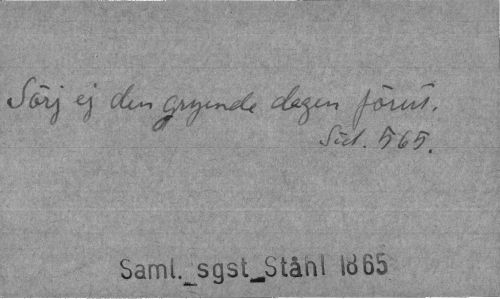 Sörj ej den gryende dagen förut.
Sid. 565.
Saml. sgst Ståhl 1865